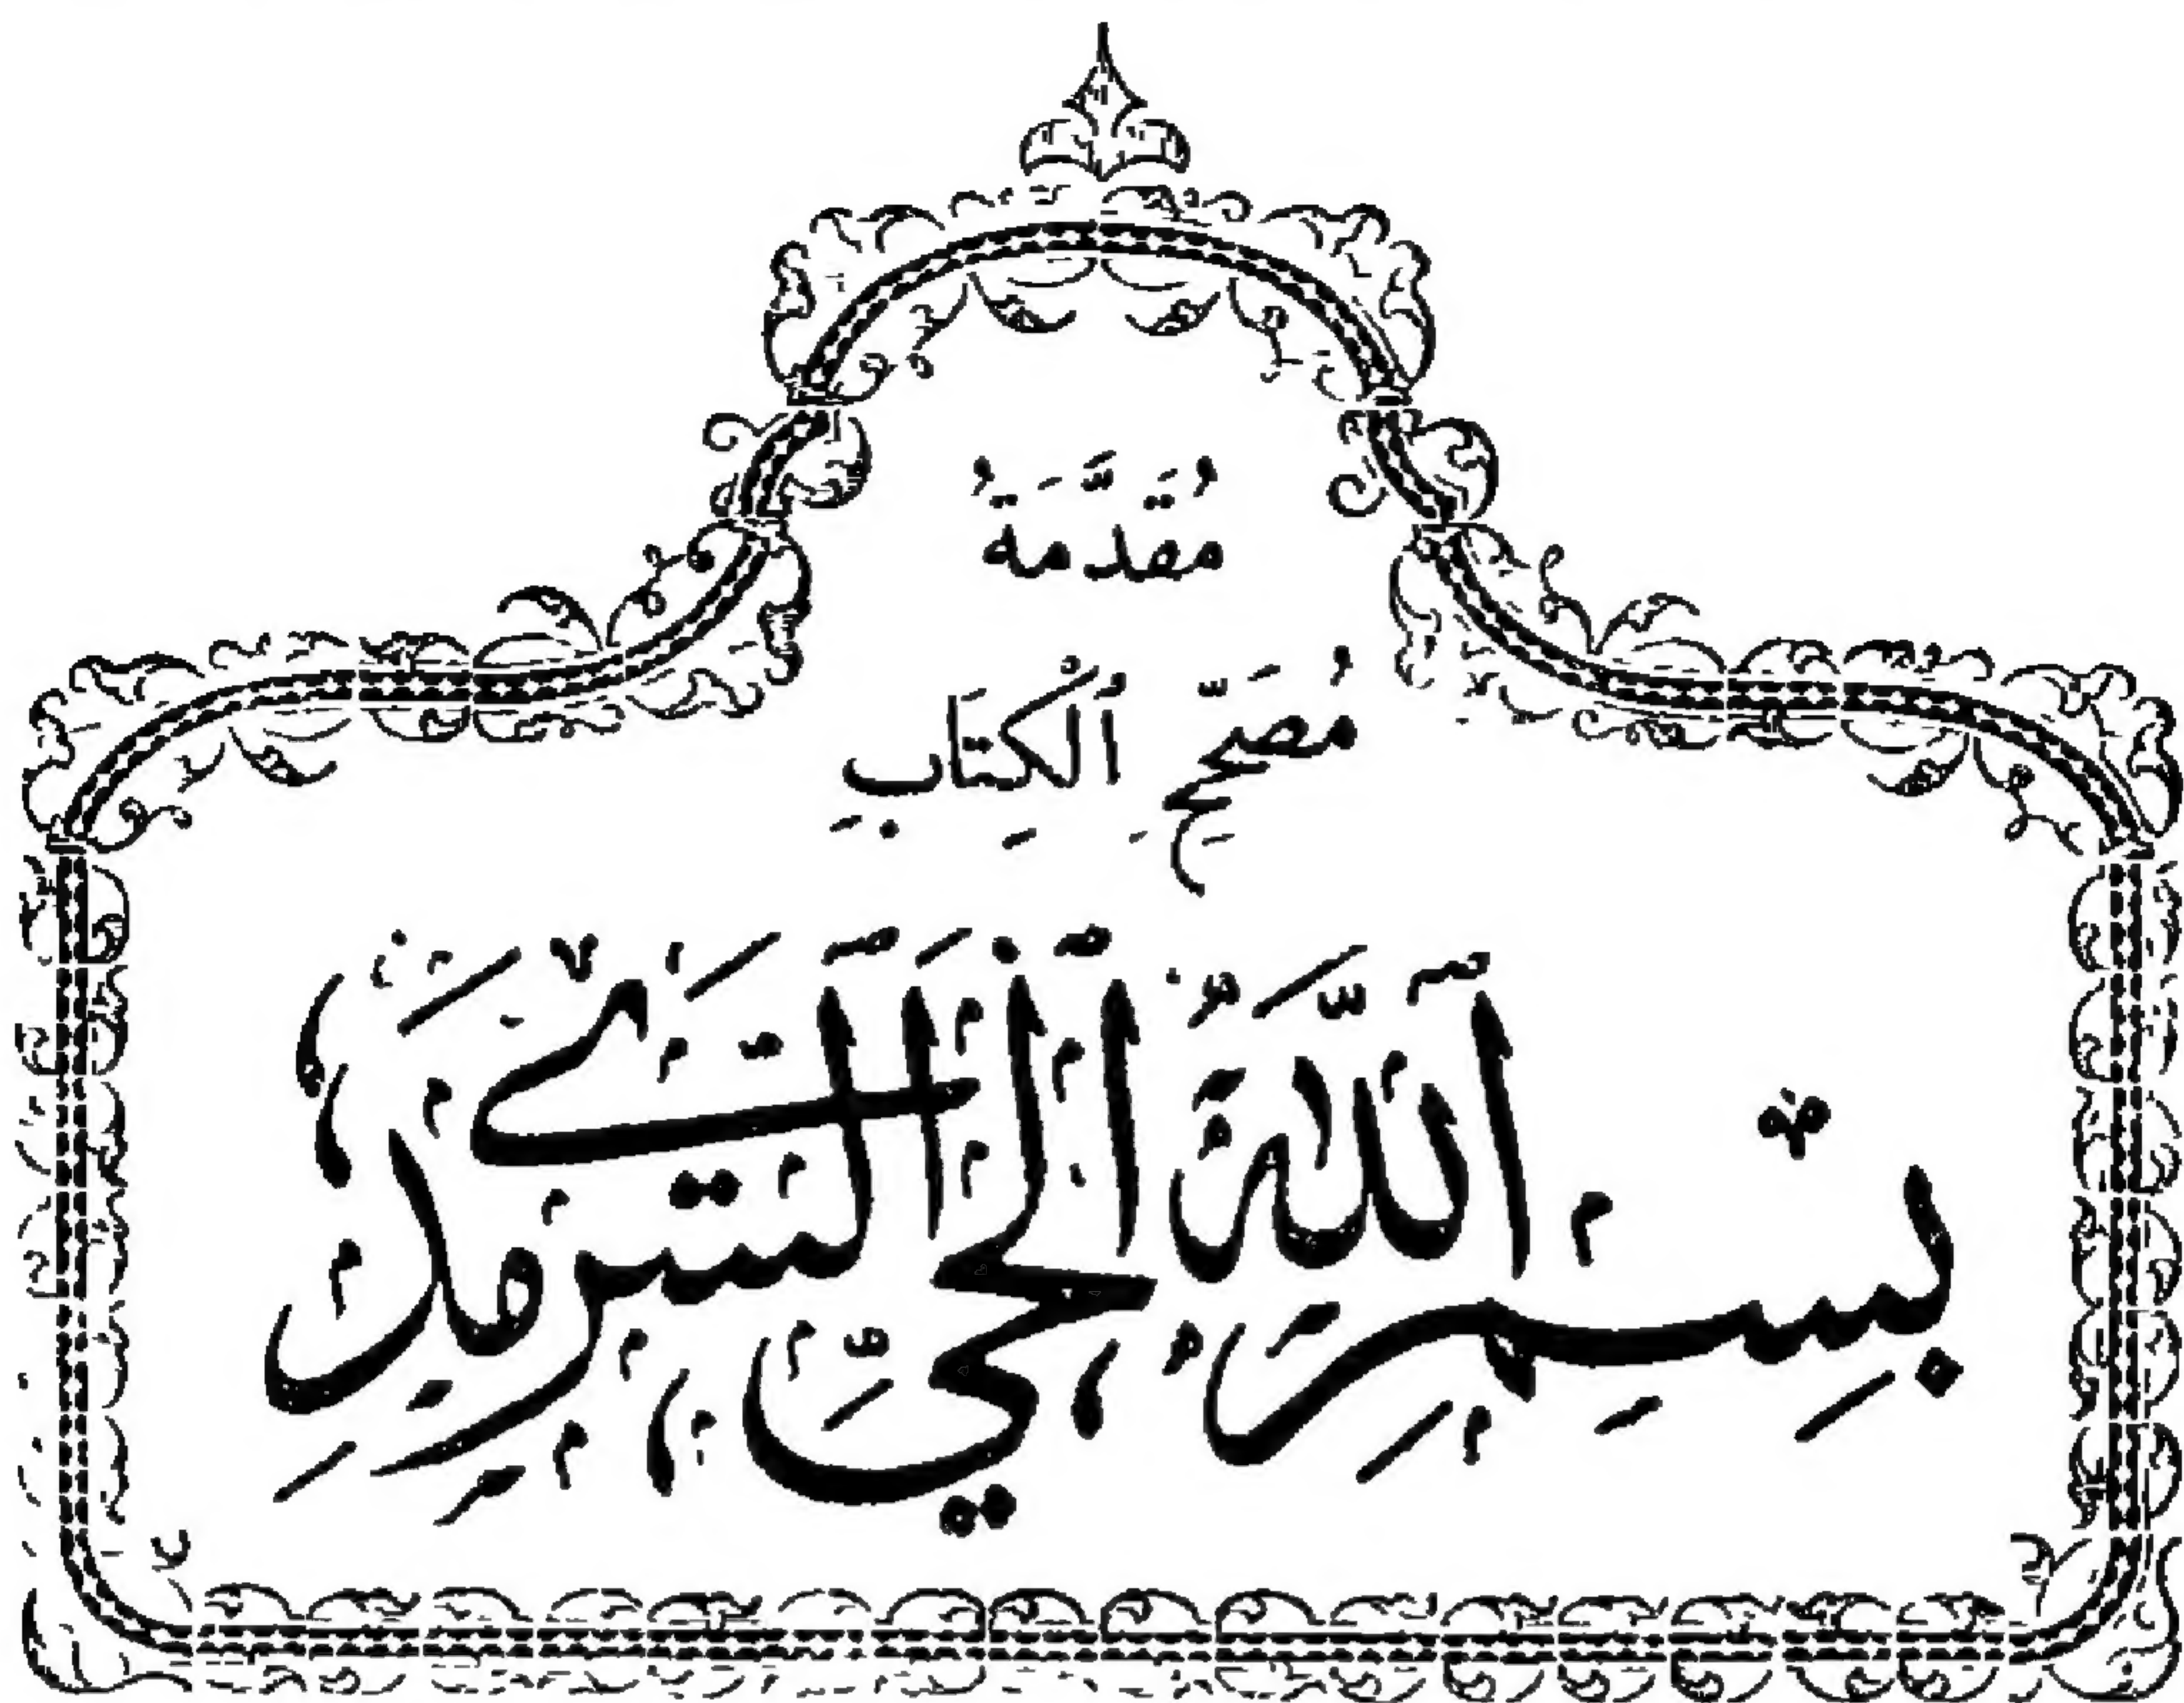 مُقَدَّمَةُ
مُصَحِّحِ ٱلْكِتَابِ
بِسْمِ ٱللَّهِ ٱلْحَيِّ ٱلسَّرْمَدِي